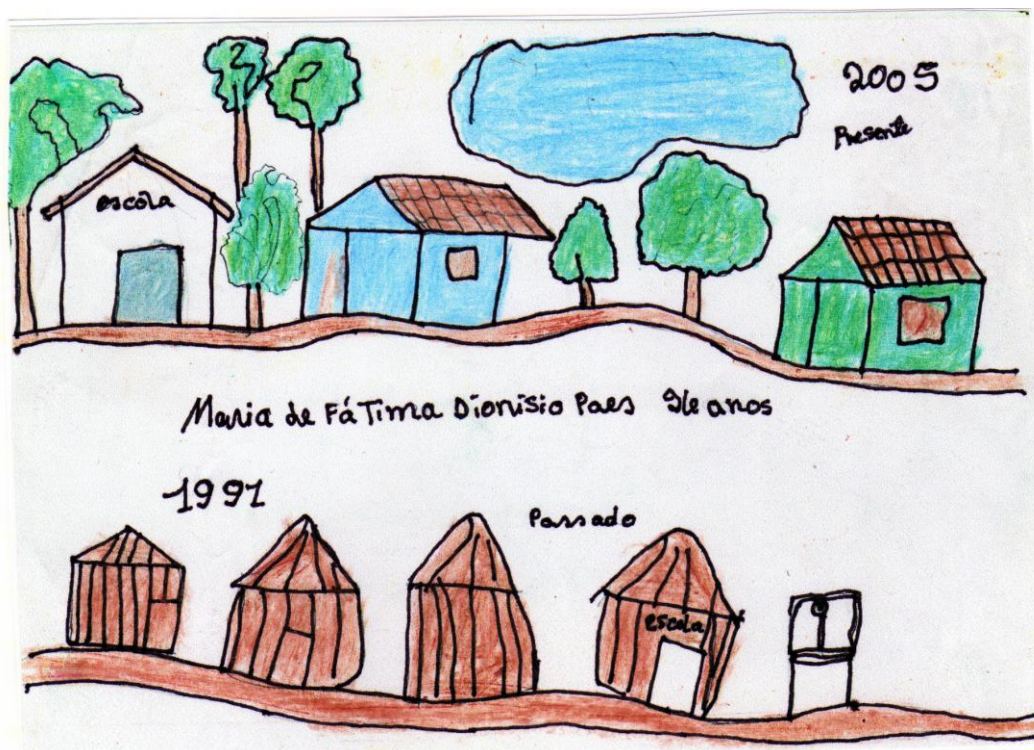 2005
Presente
escola
Maria de Fátima Dionisio Paes anos
1991
Passado
escola